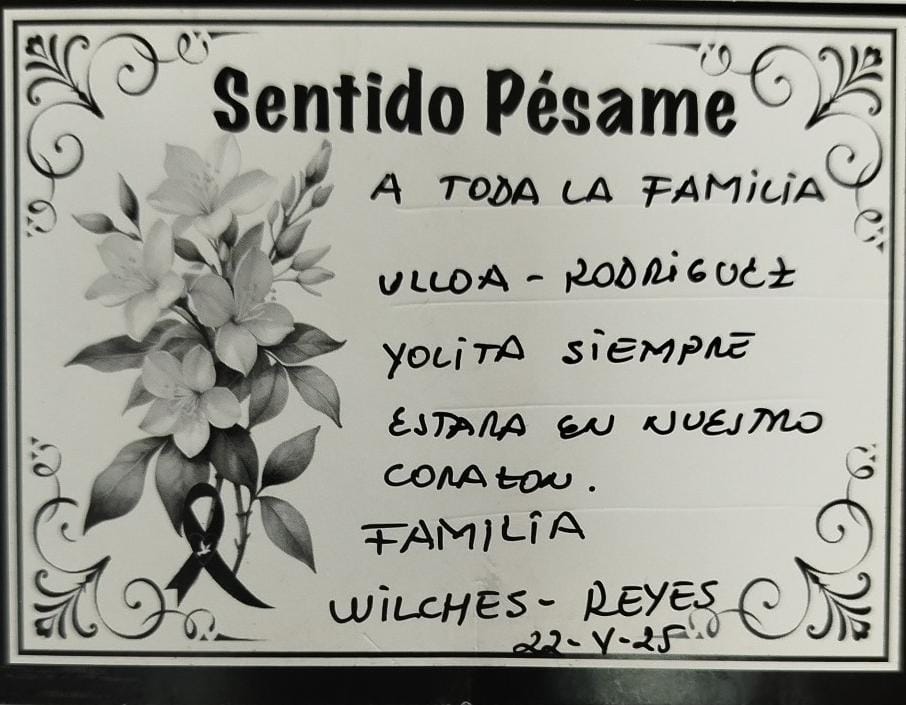 Sentido Pésame
A TODA LA FAMILIA
ULLOA - RODRIGUEZ
YOLITA SIEMPRE
ESTARA EN NUESTRO
CORAZON.
FAMILIA
WILCHES - REYES
22-V-25